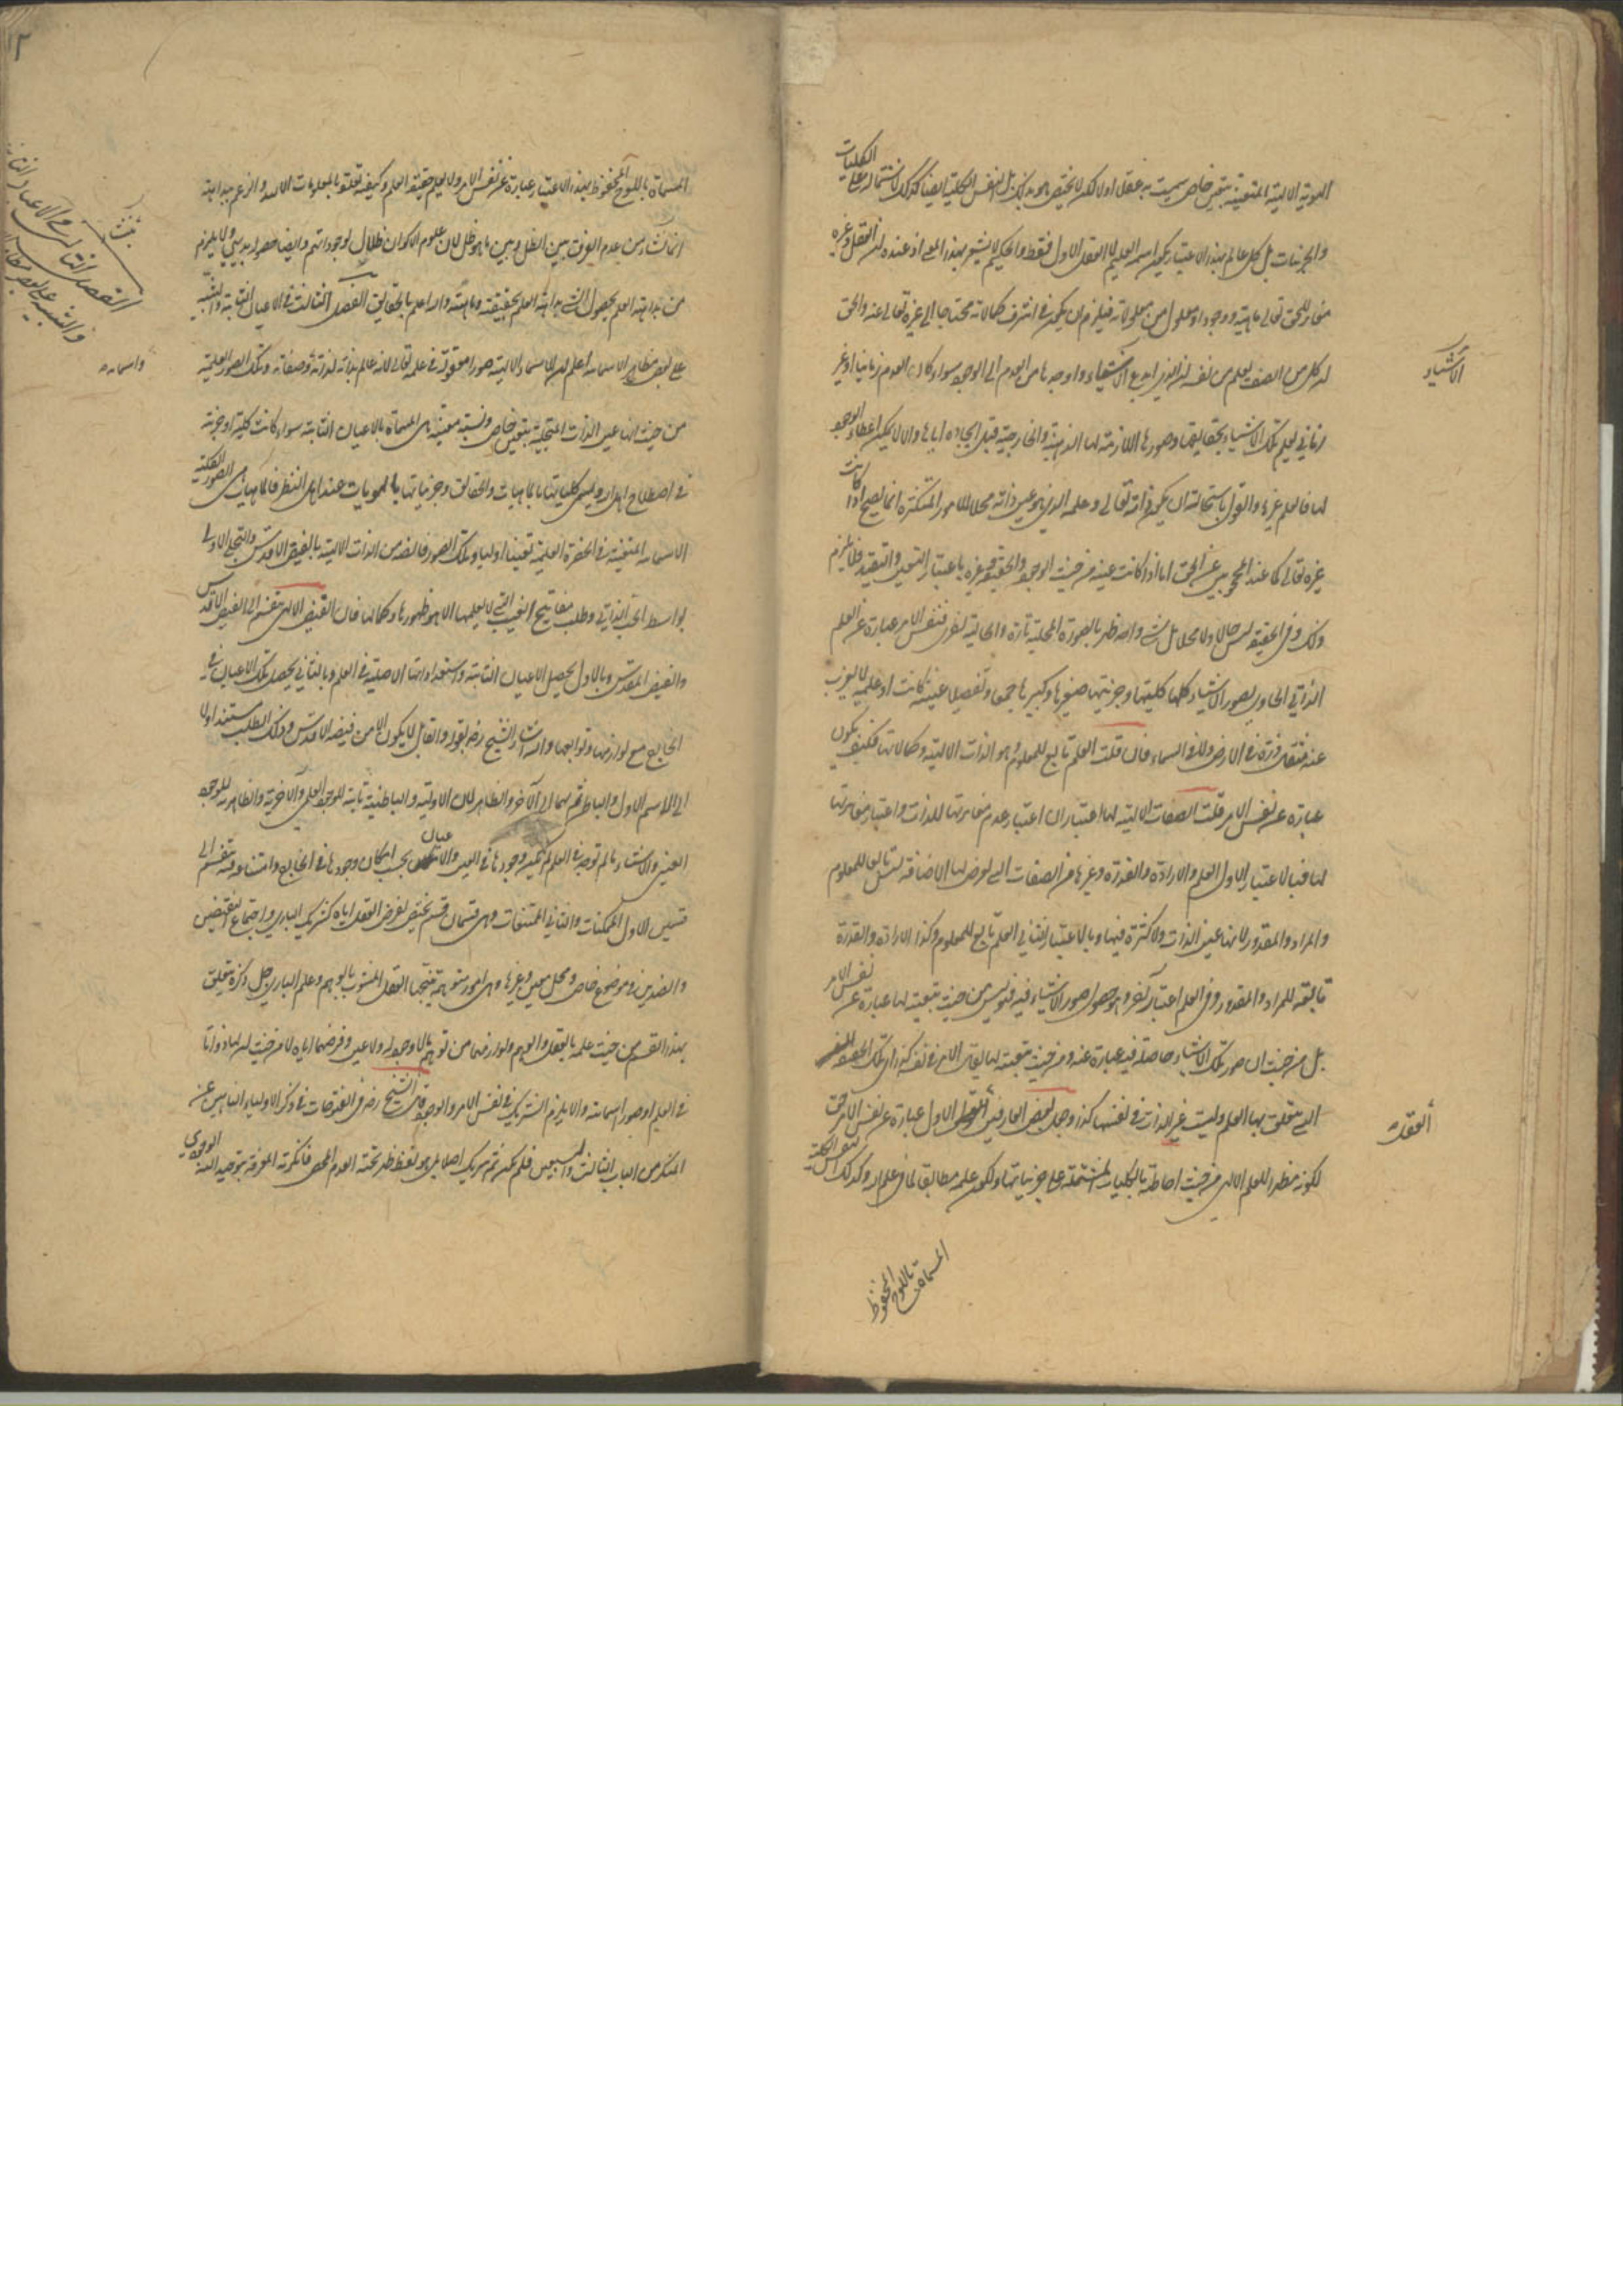 الهوية الالهية المتعينة بتعين خاص سميت به عقلا اولا لكن لا يختص هو بذلك بل النفس الكلية ايضا كذلك لاشتمالها على الكليات
والجزئيات بل كل عالم بهذا الاعتبار يكون اسمه العليم لا العقل الاول فقط والحكيم لا يشعر بهذا المعنى اذ عنده ان العقل وغيره
مغاير للحق تعالى ماهية ووجودا ومعلول من معلولاته فيلزم ان يكون في اشرف كمالاته محتاجا الى غيره تعالى عنه والحق
ان كل من انصف يعلم من نفسه ان الذي ابدع الاشياء واوجدها من العدم الى الوجود سواء كان العدم زمانيا او غير
زماني يعلم تلك الاشياء بحقايقها وصورها اللازمة لها الذهنية والخارجية قبل ايجاده اياها والا لا يمكن اعطاء الوجود
لها فالعلم غيرها والقول باستحالة ان يكون ذاته تعالى وعلمه الذي هو عين ذاته محلا للامور المتكثرة انما يصح اذا كانت
غيره تعالى كما عند المحجوبين عن الحق اما اذا كانت عينه من حيث الوجود والحقيقة وغيره باعتبار التعين والتقيد فلا يلزم
ذلك وفي الحقيقة ليس حالا ولا محلا بل شئ واحد ظهر بالصورة المحلية تارة والحالية اخرى فنفس الامر عبارة عن العلم
الذاتي الحاوي لصور الاشياء كلها كليها وجزئيها صغيرها وكبيرها جمعا وتفصيلا عينية كانت او علمية لا يعزب
عنه مثقال ذرة في الارض ولا في السماء فان قلت العلم تابع للمعلوم وهو الذات الالهية وكمالاتها فكيف يكون
عبارة عن نفس الامر قلت الصفات الالهية لها اعتباران اعتبار عدم مغايرتها للذات واعتبار مغايرتها
لها فبالاعتبار الاول العلم والارادة والقدرة وغيرها من الصفات التي يعرض لها الاضافة ليس تابعا للمعلوم
والمراد والمقدور لانها عين الذات ولا كثرة فيها وبالاعتبار الثاني العلم تابع للمعلوم وكذا الارادة والقدرة
تابعة للمراد والمقدور وفي العلم اعتبار آخر وهو حصول صور الاشياء فيه فهو ليس من حيث تبعيته لها عبارة عن نفس الامر
بل من حيث ان صور تلك الاشياء حاصلة فيه عبارة عنه ومن حيث تبعيته لها يقال الامر في نفسه كذا اي تلك الحقيقة
التي يتعلق بها العلم وليست غير الذات في نفسها كذا وجعل بعض العارفين العقل الاول عبارة عن نفس الامر حق
لكونه مظهرا للعلم الالهي من حيث احاطته بالكليات المشتملة على جزئياتها ولكون علمه مطابقا لما في علم الله وكذلك النفس الكلية
المسماة باللوح المحفوظ
الاشياء
العقل
المسماة باللوح المحفوظ بهذا الاعتبار عبارة عن نفس الامر ولا يعلم حقيقة العلم وكيفية تعلقه بالمعلومات الا الله والزعم ببداهته
انما نشاء من عدم الفرق بين الظل وبين ما هو ظل له لان علوم الاكوان ظلال لوجوداتهم وايضا حصوله بديهي ولا يلزم
من بداهة العلم بحصول الشئ بداهة العلم بحقيقته وماهيته والله اعلم بالحقايق الفصل الثالث في الاعيان الثابتة والتنبيه
على بعض مظاهر الاسمائه اعلم ان للاسماء الالهية صورا معقولة في علمه تعالى لانه عالم بذاته لذاته وصفاته وتلك الصور العلمية
من حيث انها عين الذات المتجلية بتعين خاص ونسبة معينة هي المسماة بالاعيان الثابتة سواء كانت كلية او جزئية
في اصطلاح اهل الله ويسمى كلياتها بالماهيات والحقايق وجزئياتها بالهويات عند اهل النظر فالماهيات هي الصور الكلية
الاسمائيه المتعينة في الحضرة العلمية تعينا اوليا وتلك الصور فايضة من الذات الالهية بالفيض الاقدس والتجلي الاول
بواسطة الحب الذاتي وطلب مفاتيح الغيب التي لا يعلمها الا هو ظهورها وكمالها فان الفيض الالهي ينقسم الى الفيض الاقدس
والفيض المقدس وبالاول يحصل الاعيان الثابتة واستعداداتها الاصلية في العلم وبالثاني يحصل تلك الاعيان في
الخارج مع لوازمها وتوابعها واليه اشار الشيخ رضه بقوله والقابل لا يكون الا من فيضه الاقدس وذلك الطلب مستند اولا
الى الاسم الاول والباطن ثم بهما الى الآخر والظاهر لان الاولية والباطنية ثابتة للوجود العلمي والآخرية والظاهرية للوجود
العيني والاشياء ما لم توجد في العلم لم يمكن وجودها في العين والاعيان بحسب امكان وجودها في الخارج وامتناعه فيه تنقسم الى
قسمين الاول الممكنات والثاني الممتنعات وهي قسمان قسم يختص بفرض العقل اياه كشريك الباري واجتماع النقيضين
والضدين في موضوع خاص ومحل معين وغيرها وهي امور متوهمة ينتجها العقل المشوب بالوهم وعلم الباري جل ذكره يتعلق
بهذا القسم من حيث علمه بالعقل والوهم ولوازمهما من توهم ما لا وجود له ولا عين وفرضهما اياه لا من حيث ان لها ذواتا
في العلم او صورا اسمائية والا يلزم الشريك في نفس الامر والوجود قال الشيخ رضه في الفتوحات في ذكر الاولياء الناهين عن
المنكر من الباب الثالث والسبعين فلم يكن ثم شريك اصلا بل هو لفظ ظهر تحته العدم المحض فانكرته المعرفة بتوحيد الله الوجودي
الفصل الثالث في الاعيان الثابتة
والتنبيه على بعض مظاهر
واسمائه